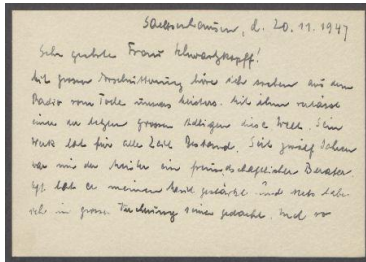 Sachsenhausen, d. 20.11.1947
Sehr geehrte Frau Schwartzkopff!
Mit grosser Erschütterung höre ich soeben aus dem
Radio vom Tode unseres Meisters. Mit ihm verlässt
einer der letzten grossen diese Welt. Sein
Werk hat für alle Zeit Bestand. Seit zwölf Jahren
war mir der Meister ein freundschaftlicher Berater.
Oft hat er meinen gestärkt. Und stets habe
ich in grosser Verehrung seiner gedacht. Und so